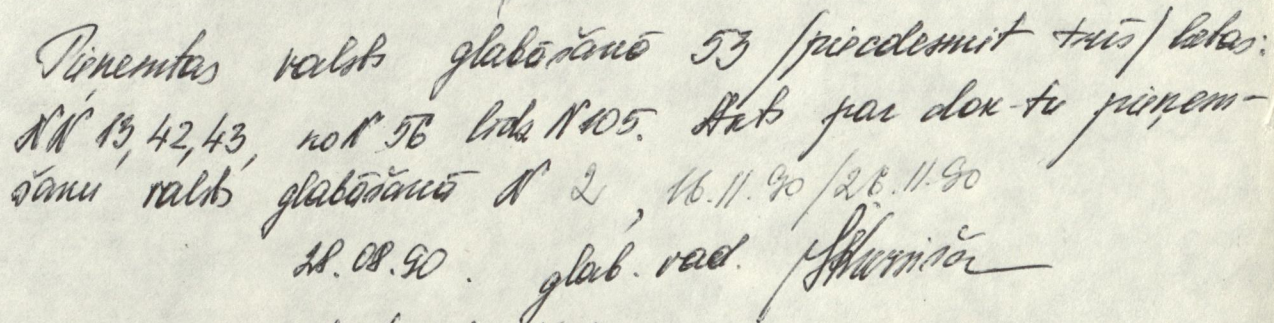 Pieņemtas valsts glabāšanā 53 /piecdesmit trīs/ lietas:
NN 13, 42, 43, no N 56 līdz N 105. Akts par dok-tu pieņem-
šanu valsts glabāšanā N 2, 16.11.90/28.11.90
28.08.90. glab. vad.